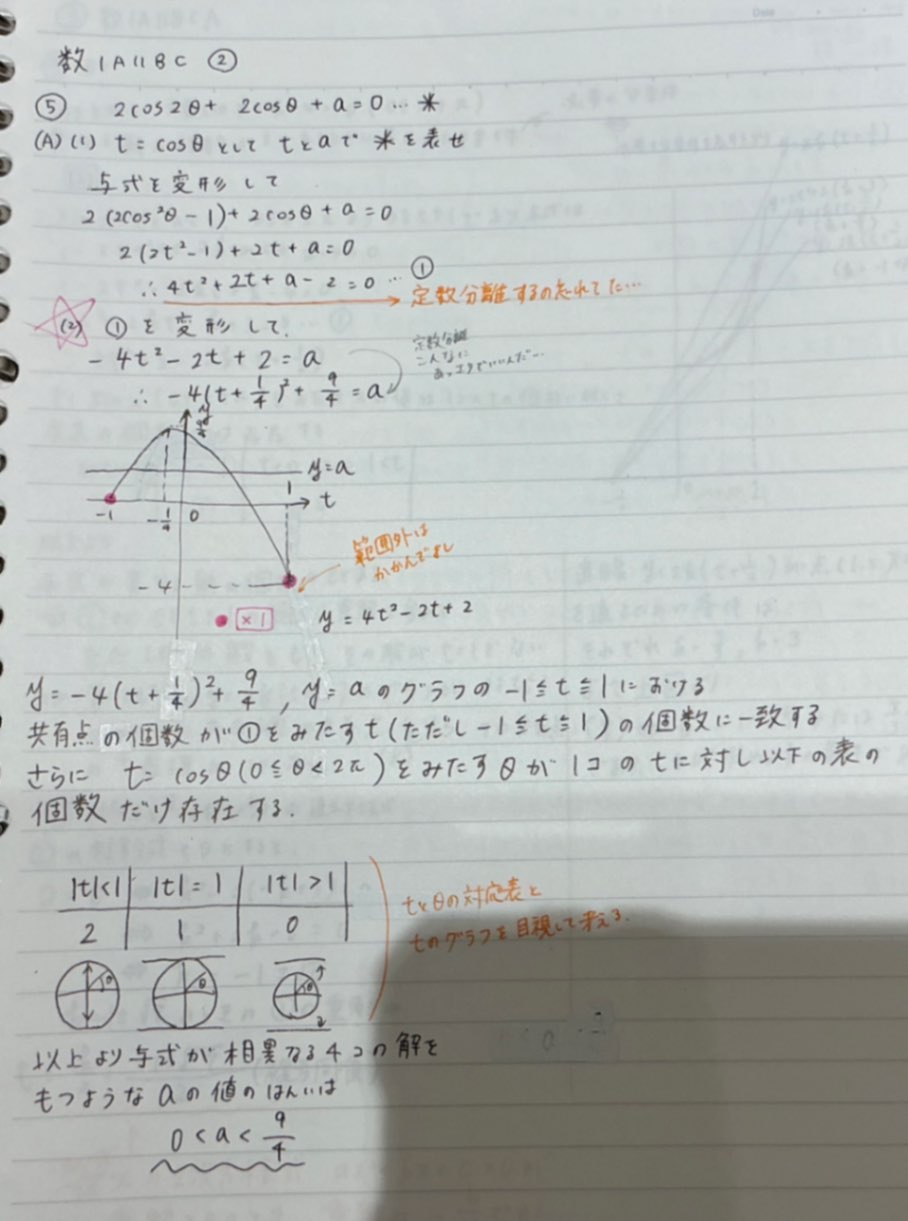 数ⅠAⅡBC ②
⑤ 2cos2θ + 2cosθ + a = 0 … ※
(A) (1) t = cosθとして tとaで ※を表せ
与式を変形して
2(2cos²θ - 1) + 2cosθ + a = 0
2(2t² - 1) + 2t + a = 0
∴ 4t² + 2t + a - 2 = 0 … ①
定数分離するの忘れてた…
(2) ①を変形して.
- 4t² - 2t + 2 = a
定数分離
こんなに
∴ -4(t + 1/4)² + 9/4 = a
y
9/4
y = a
1
t
-1
-1/4
0
範囲外は
かかんでよし
-4
×1
y = 4t² - 2t + 2
y = -4(t + 1/4)² + 9/4 , y = a のグラフの -1 ≦ t ≦ 1 における
共有点の個数が①をみたす t (ただし -1 ≦ t ≦ 1) の個数に一致する
さらに t = cosθ (0 ≦ θ < 2π) をみたす θ が 1コの t に対し以下の表の
個数だけ存在する.
|t|<1 |t| = 1 |t| > 1
2 1 0
tとθの対応表と
tのグラフを目視して考える.
θ θ θ
以上より与式が相異なる4コの解を
もつような a の値のはんいは
0 < a < 9/4